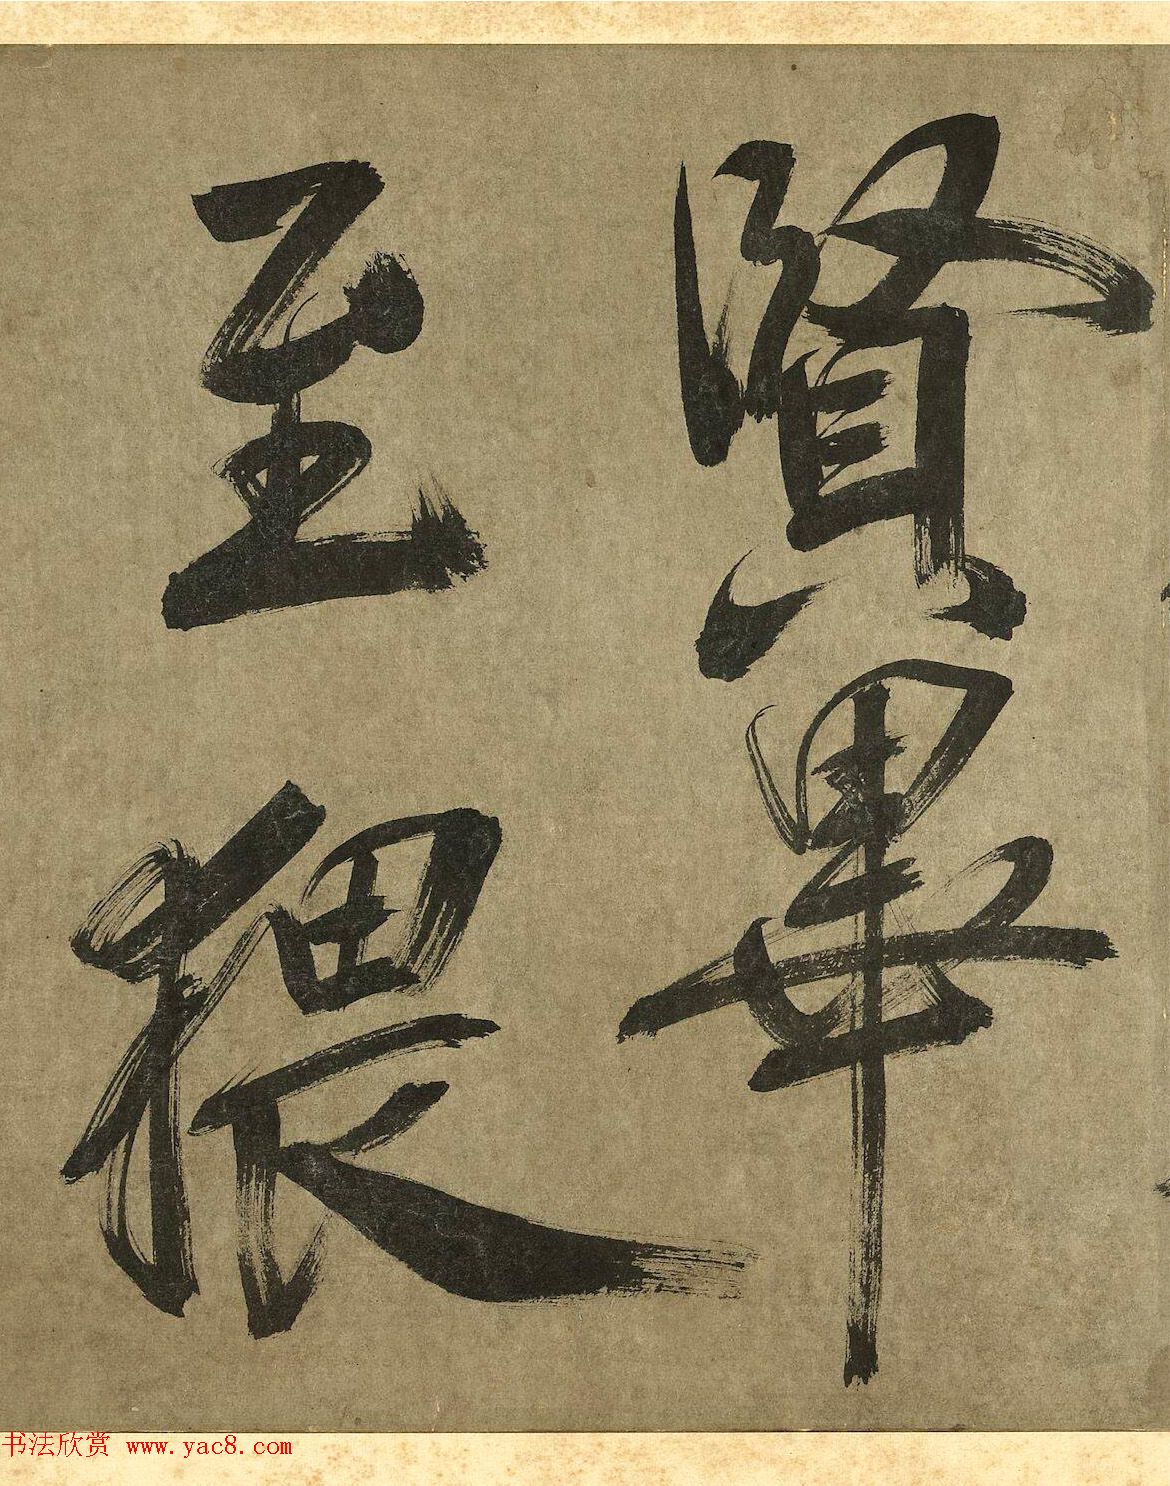 賢畢
至猥
书法欣赏 www.yac8.com